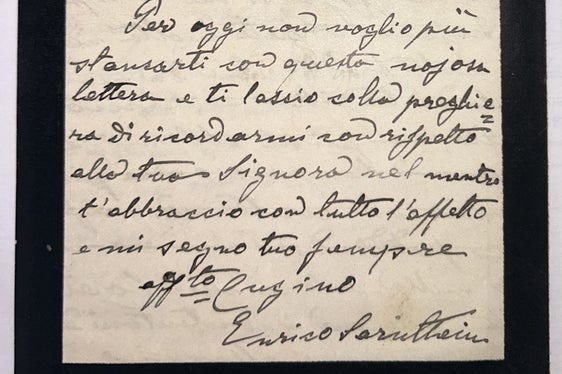 Per oggi non voglio più
stancarti con questa nojosa
lettera e ti lascio colla preghie=
ra di ricordarmi con rispetto
alla tua Signora nel mentre
t'abbraccio con tutto l'affetto
e mi segno tuo sempre
aff.to Cugino
Enrico